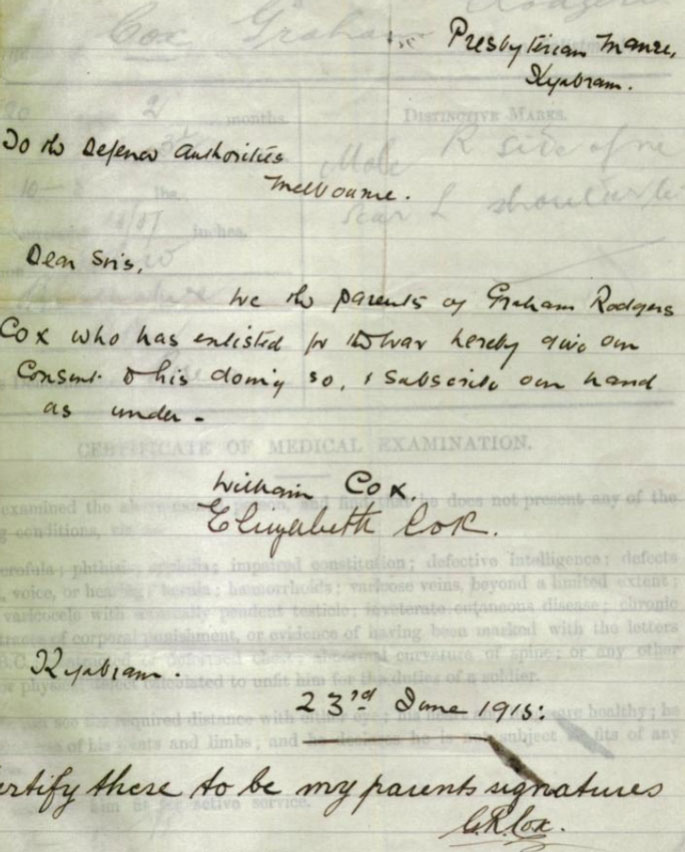 Presbyterian Manse,
Kyabram.
To the Defence Authorities
Melbourne.
Dear Sirs,
We the parents of Graham Rodgers
Cox who has enlisted for the war hereby give our
Consent to his doing so, & Subscribe our hand
as under -
William Cox.
Elizabeth Cox.
Kyabram.
23rd June 1915.
ertify these to be my parents signatures
G.R.Cox.
Cox Graham
2 months.
DISTINCTIVE MARKS.
Mole R side of
Scar L shoulder
lbs.
inches.
CERTIFICATE OF MEDICAL EXAMINATION.
examined the does not present any of the
conditions,
phthisis; impaired constitution; defective intelligence; defects
voice, or hemorrhoids; varicose veins, beyond a limited extent;
varicocele with testicle; inveterate cutaneous disease; chronic
traces of corporal punishment, or evidence of having been marked with the letters
curvature of spine; or any other
physical defect calculated to unfit him for the duties of a soldier.
see the required distance with healthy; he
of his joints and limbs; and he declares he is not subject to fits of any
him fit for active service.